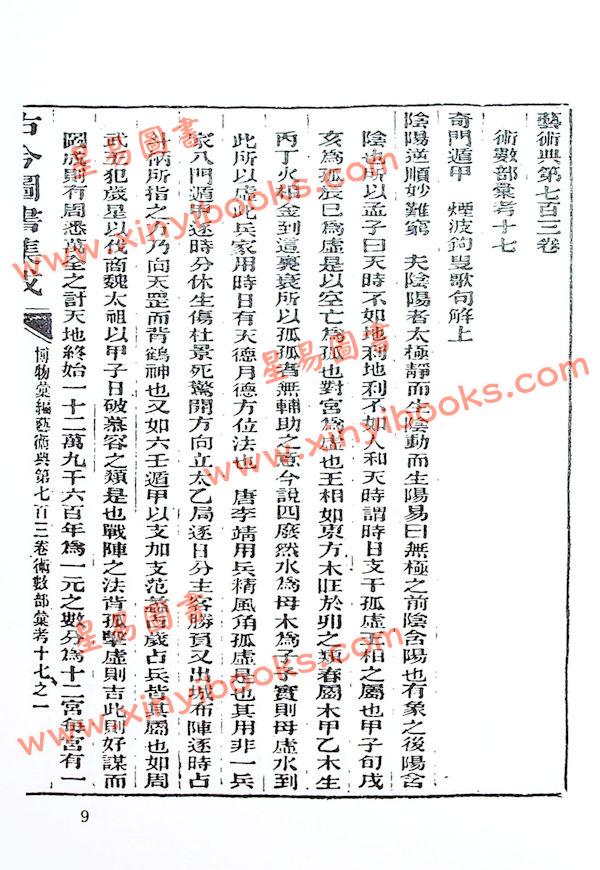 藝術典第七百三卷
術數部彙考十七
奇門遁甲 煙波釣叟歌句解上
陰陽逆順妙難窮 夫陰陽者太極靜而生陰動而生陽易曰無極之前陰含陽也有象之後陽含
陰也所以孟子曰天時不如地利地利不如人和天時謂時日支干孤虛王相之屬也甲子旬戌
亥為孤辰巳為虛是以空亡為孤也對宮為虛也王相如東方木旺於卯之類春屬木甲乙木生
丙丁火相金到這裏衰所以孤孤者無輔助之意今說四廢然水為母木為子子實則母虛水到
此所以虛此兵家用時日有天德月德方位法也 唐李靖用兵精風角孤虛是也其用非一兵
家八門遁甲逐時分休生傷杜景死驚開方向立太乙局逐日分主客勝負又出城布陣逐時占
斗柄所指之方乃向天罡而背鶴神也又如六壬遁甲以支加支范蠡占歲占兵皆其屬也如周
武王犯歲星以伐商魏太祖以甲子日破慕容之類是也戰陣之法背孤擊虛則吉此則好謀而
圖成則有周悉萬全之計天地終始一十二萬九千六百年為一元之數分為十二宮每宮有一
古今圖書集成
博物彙編藝術典第七百三卷術數部彙考十七之一
9
星易圖書
www.xinyibooks.com
星易圖書
www.xinyibooks.com
星易圖書
www.xinyibooks.com